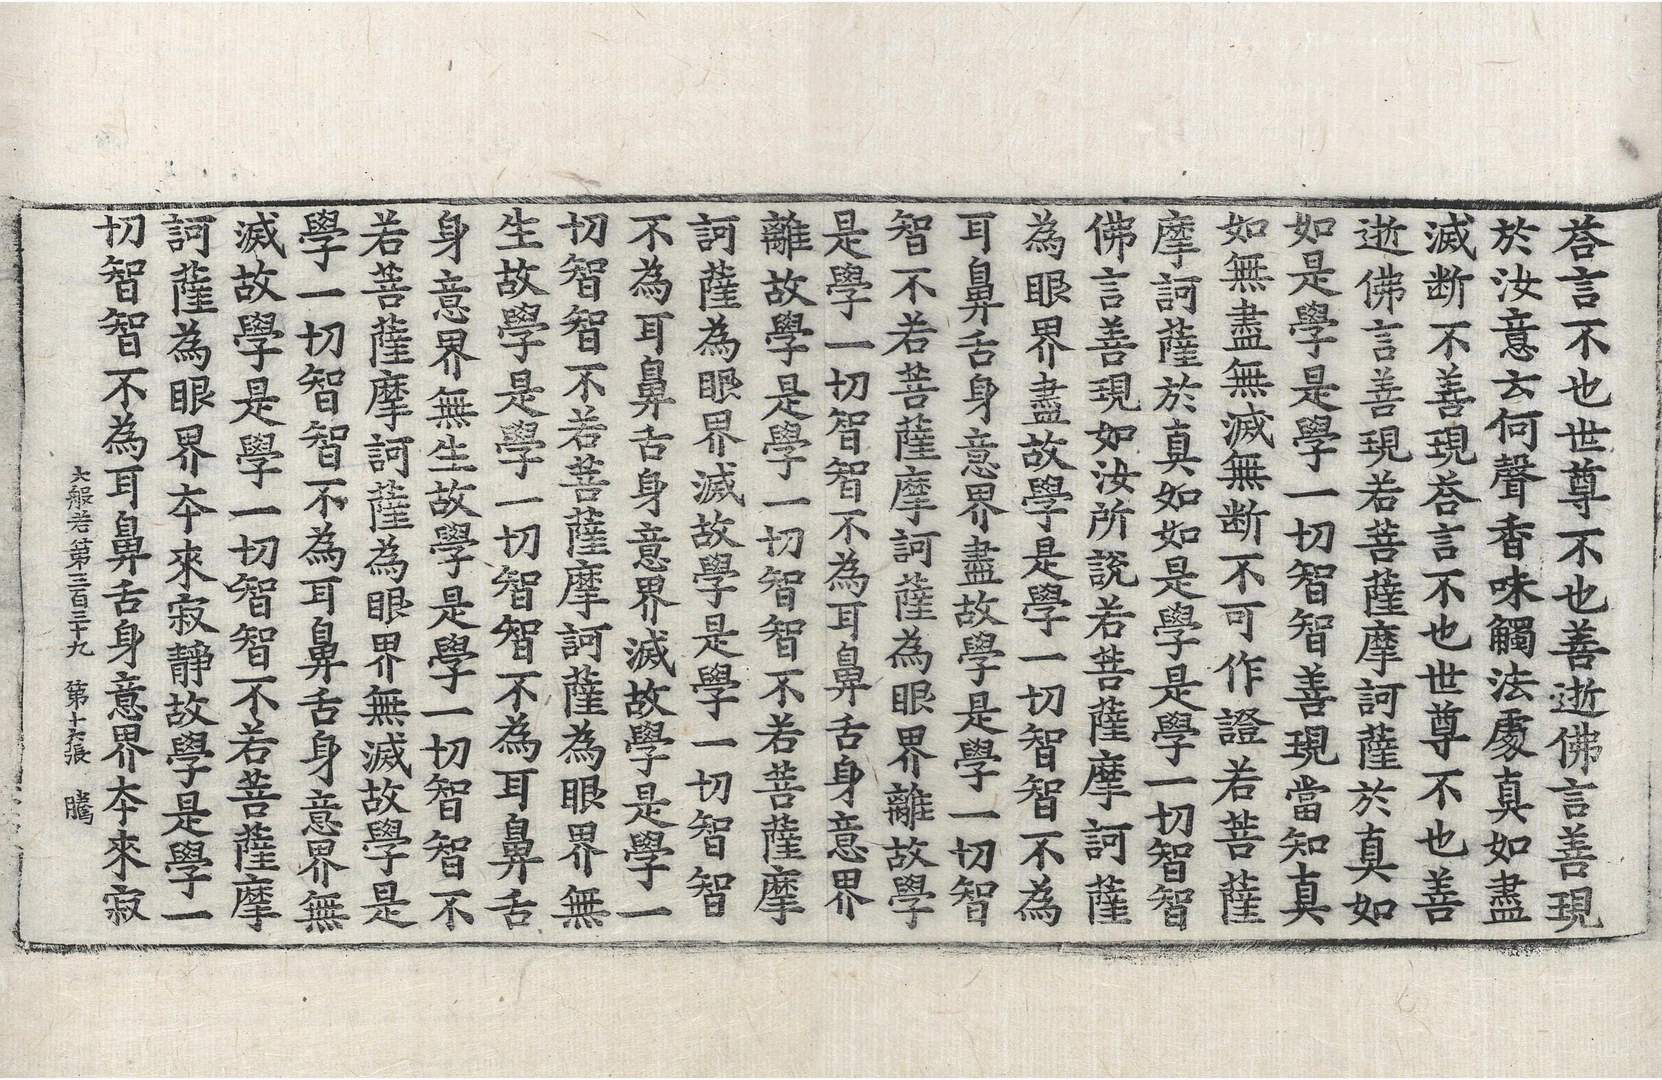 荅言不也世尊不也善逝佛言善現
於汝意云何聲香味觸法處真如盡
滅断不善現荅言不也世尊不也善
逝佛言善現若菩薩摩訶薩於真如
如是學是學一切智智善現當知真
如無盡無滅無断不可作證若菩薩
摩訶薩於真如如是學是學一切智智
佛言善現如汝所說若菩薩摩訶薩
為眼界盡故學是學一切智智不為
耳鼻舌身意界盡故學是學一切智
智不若菩薩摩訶薩為眼界離故學
是學一切智智不為耳鼻舌身意界
離故學是學一切智智不若菩薩摩
訶薩為眼界滅故學是學一切智智
不為耳鼻舌身意界滅故學是學一
切智智不若菩薩摩訶薩為眼界無
生故學是學一切智智不為耳鼻舌
身意界無生故學是學一切智智不
若菩薩摩訶薩為眼界無滅故學是
學一切智智不為耳鼻舌身意界無
滅故學是學一切智智不若菩薩摩
訶薩為眼界夲來寂靜故學是學一
切智智不為耳鼻舌身意界夲來寂
大般若第三百三十九 第十六張 騰